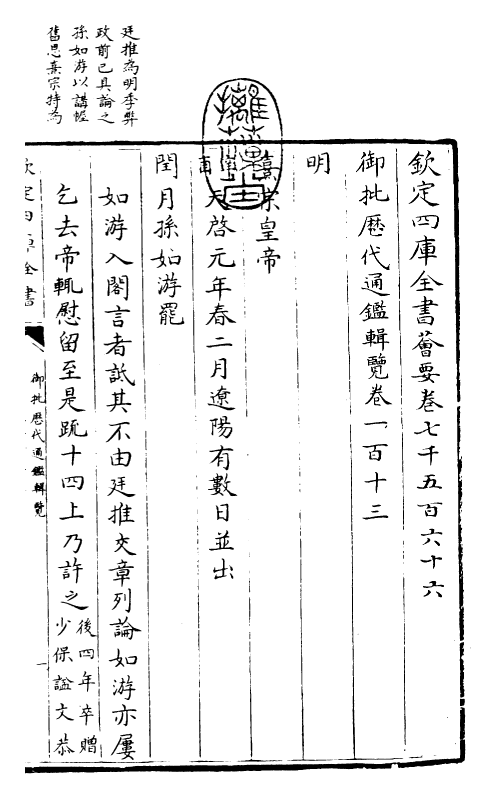 欽定四庫全書薈要卷七千五百六十六
御批歷代通鑑輯覽卷一百十三
明
熹宗皇帝
天啓元年春二月遼陽有數日並出
閏月孫如游罷
如游入閣言者詆其不由廷推交章列論如游亦屢
乞去帝輒慰留至是䟽十四上乃許之後四年卒贈
少保謚文恭
廷推為明季弊
政前已具論之
孫如游以講幄
舊恩熹宗特為
欽定四庫全書
御批歷代通鑑輯覽
一